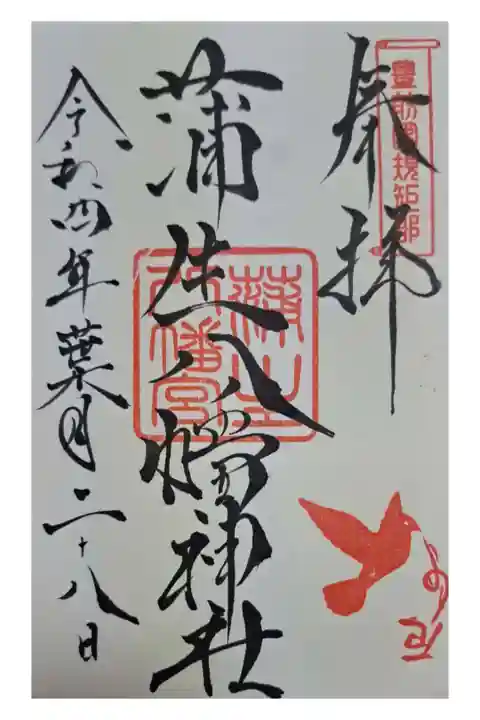 奉拝
豊前国規矩郡
蒲生八幡神社
蒲生八幡宮
令和四年葉月二十八日